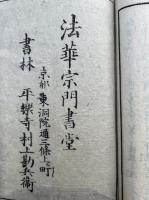 法華宗門書堂
京都東洞院通三條上ル町
書林 平樂寺村上勘兵衛